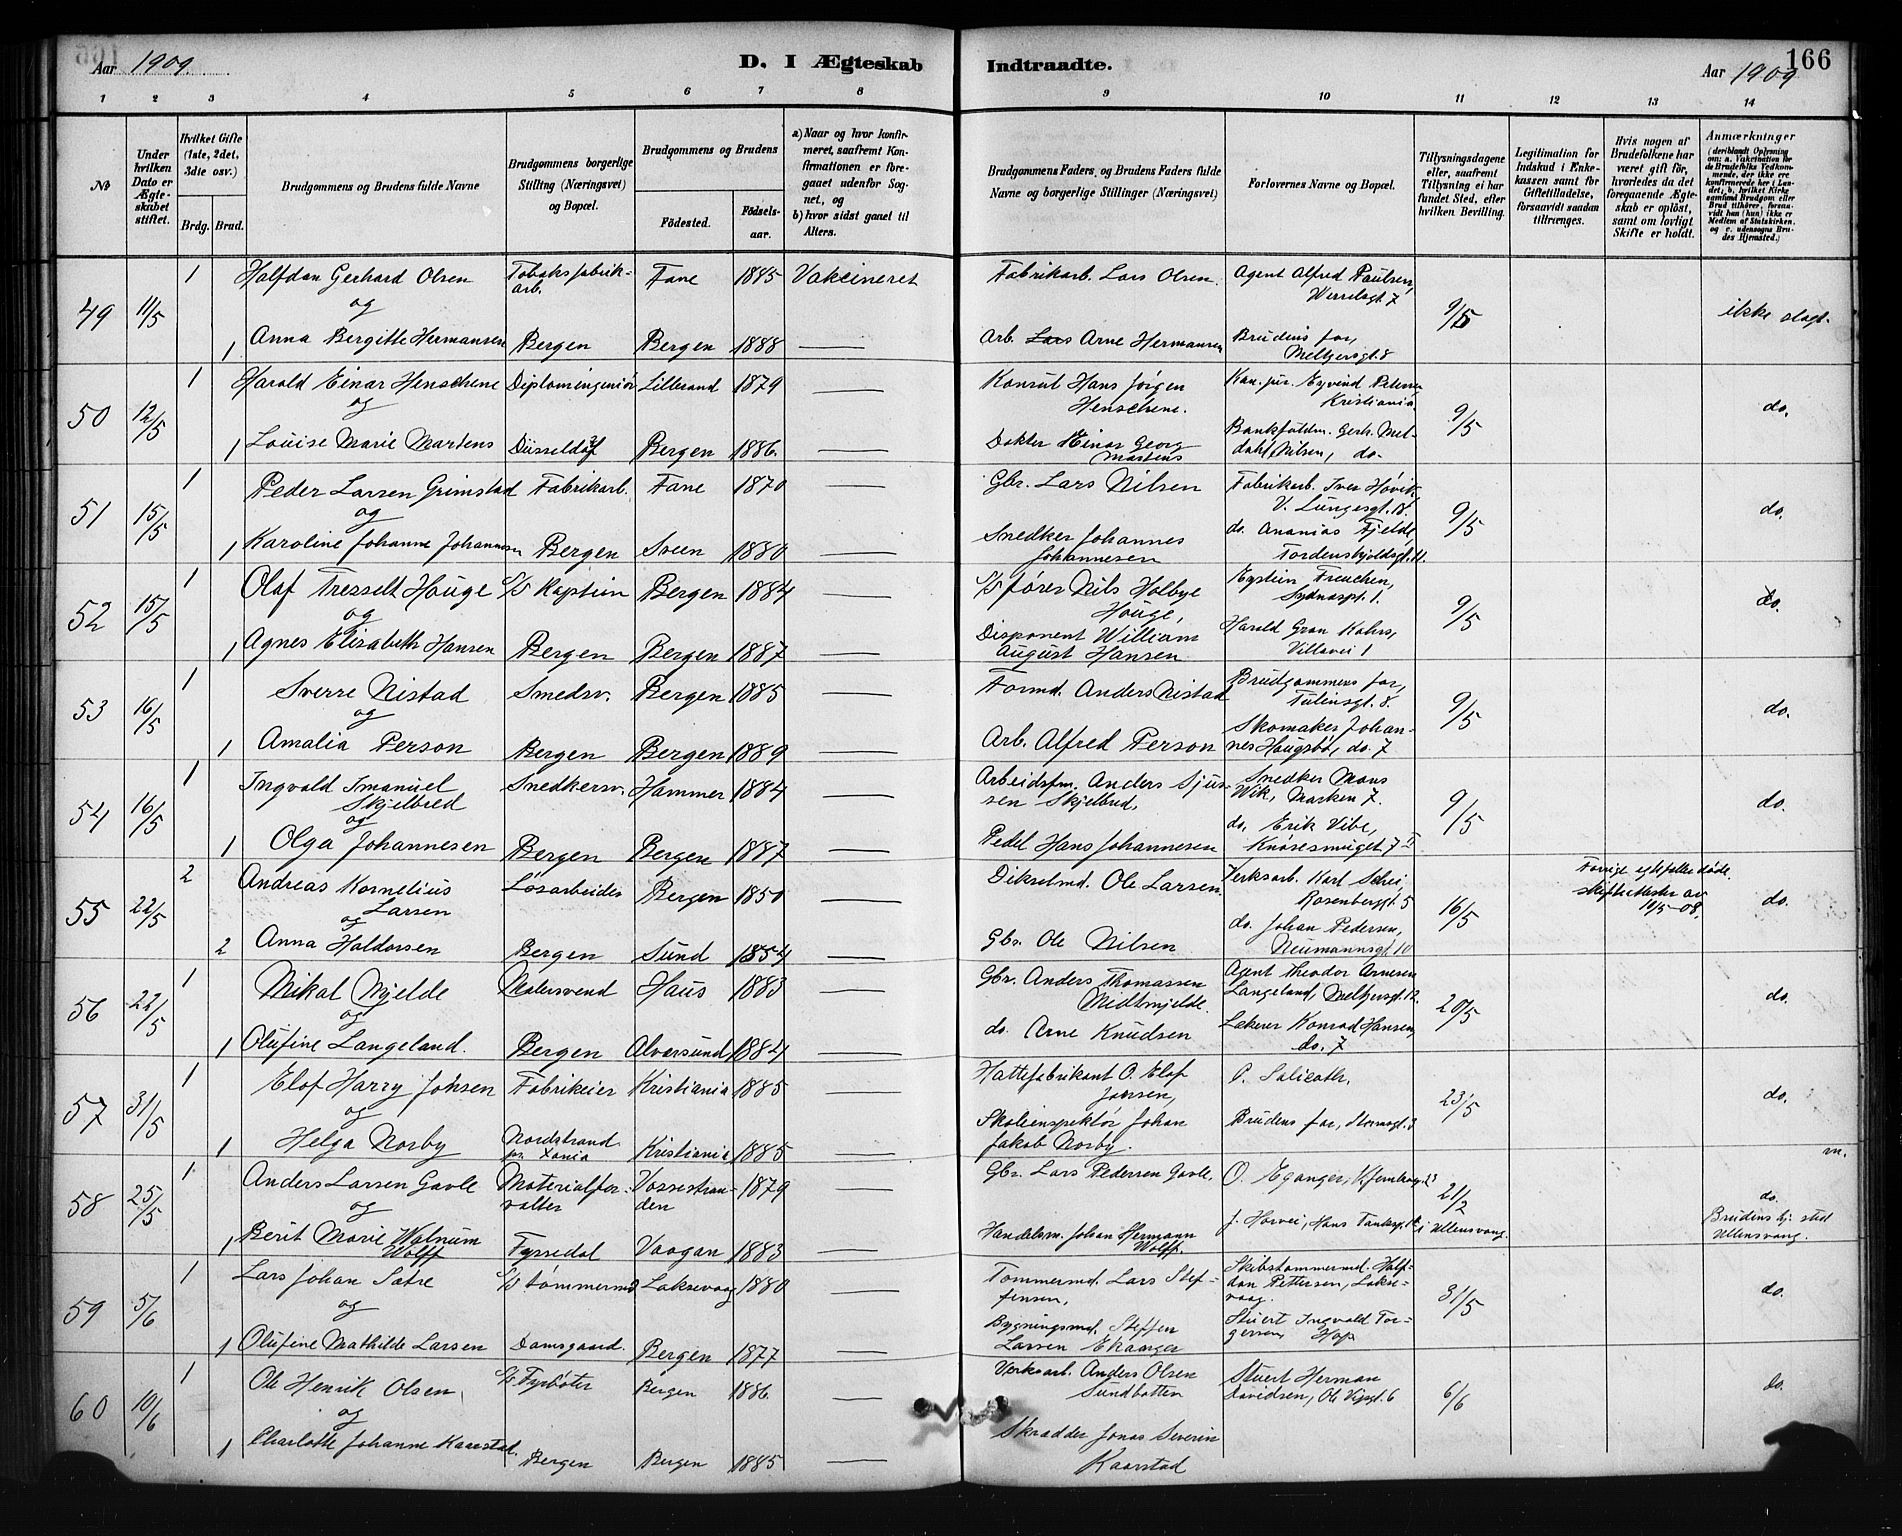 Aar 1909.
D. I Ægteskab Indtraadte.
166
Aar 1909
1 2 3 4 5 6 7 8 9 10 11 12 13 14
No
Under hvilken Dato er Ægteskabet stiftet.
Hvilket Gifte (1ste, 2det, 3dte osv.)
Brdg. Brud.
Brudgommens og Brudens fulde Navne
Brudgommens borgerlige Stilling (Næringsvei) og Bopæl.
Brudgommens og Brudens
Fødested.
Fødselsaar.
a) Naar og hvor konfirmeret, saafremt Konfirmationen er foregaaet udenfor Sognet, og
b) hvor sidst gaaet til Alters.
Brudgommens Faders og Brudens Faders fulde Navne og borgerlige Stillinger (Næringsvei)
Forlovernes Navne og Bopæl.
Tillysningsdagene eller, saafremt Tillysning ei har fundet Sted, efter hvilken Bevilling.
Legitimation for Indskud i Enkekassen samt for Giftetilladelse, forsaavidt saadan tiltrænges.
Hvis nogen af Brudefolkene har været gift før, hvorledes da det foregaaende Ægteskab er opløst, samt om lovligt Skifte er holdt.
Anmærkninger (deriblandt Oplysning om: a. Vakcination for de Brudefolks Vedkommende, der ikke ere konfirmerede her i Landet; b. hvilket Kirkesamfund Brudgom eller Brud tilhører, forsaavidt han (hun) ikke er Medlem af Statskirken, og c. udensogns Brudes Hjemsted.)
49 11/5 1 Halfdan Gerhard Olsen Tobaksfabrikarb. Fane 1885 Vakcineret Fabrikarb. Lars Olsen. Agent Alfred Paulsen, 7 9/5 ikke slægt.
og
1 Anna Bergitte Hermansen Bergen Bergen 1888 — Arb. Arne Hermansen Brudens far, Meltzersgt. 8
50 12/5 1 Harald Einar Henschene Diplomingeniør Lillesand 1879 — Konsul Hans Jørgen Henschene. Kan. jur. Eyvind Petersen Kristiania 9/5 do.
og
1 Louise Marie Martens Düsseldorf Bergen 1886. Dokter Einar Georg Martens Bankfuldm. Gerh. Meldahl Nilsen, do.
51 15/5 1 Peder Larsen Grimstad Fabrikarb. Fane 1870 — Gbr. Lars Nilsen Fabrikarb. Iver Høvik, V. Lungesgt. 18. 9/5 do.
og
1 Karoline Johanne Johannesen Bergen Sveen 1880 — Snedker Johannes Johannesen do. Ananias Fjelde, Tordenskjoldsgt. 11.
52 15/5 1 Olaf Tresselt Houge S/S Kaptein Bergen 1884 — S/S fører Nils Holbye Houge, Eystein Freuchen, Sydnæspl. 1. 9/5 do.
og
1 Agnes Elisabeth Hansen Bergen Bergen 1887 — Disponent William August Hansen Harald Gran Kahrs, Villavei 1
53 16/5 1 Sverre Nistad Smedsv. Bergen 1885 — Formd. Anders Nistad Brudgommens far, Tulinsgt. 8. 9/5 do.
og
1 Amalia Person Bergen Bergen 1889 — Arb. Alfred Person Skomaker Johannes Haugsbø, do. 7
54 16/5 1 Ingvald Imanuel Skjelbred Snedkersv. Hammer 1884 — Arbeidsfm. Anders Sjursen Skjelbred, Snedker Mons Wik, Marken 7. 9/5 do.
og
1 Olga Johannesen Bergen Bergen 1887 — Pedel Hans Johannesen do. Erik Vibe, Knøsesmuget 7 I
55 22/5 2 Andreas Kornelius Larsen Løsarbeider Bergen 1850 — Dikselmd. Ole Larsen. Verksarb. Karl Schei, Rosenbergsgt. 5 16/5 Forrige egtefeller døde. skifteattester av 10/5-08. do.
og
2 Anna Haldorsen Bergen Sund 1854 — Gbr. Ole Nilsen do. Johan Pedersen, Neumannsgt. 10
56 22/5 1 Mikal Mjelde Malersvend Haus 1883 — Gbr. Anders Thomassen Midtmjelde. Agent Theodor Arnesen Langeland, Meltzersgt. 12. 20/5 do.
og
1 Olufine Langeland. Bergen Alversund 1884 — do. Arne Knudsen Lakerer Konrad Hansen, do. 7
57 31/5 1 Elof Harry Johsen Fabrikeier Kristiania 1885 — Hattefabrikant O. Elof Jansen, P. Salicath. 23/5 do.
og
1 Helga Norby Nordstrand pr. Xania Kristiania 1885 — Skoleinspektør Johan Jakob Norby. Brudens far,
58 25/5 1 Anders Larsen Gavle Materialforvalter Vossestranden 1879 — Gbr. Lars Pedersen Gavle. O. Eganger, 21/2 i Ullensvang. m. do.
og
1 Berit Marie Walnum Wolff Tyssedal Vaagan 1883 — Handelsm. Johan Hermann Wolff. J. Horvei, Hans Tanksgt. Brudens hj. sted Ullensvang.
59 5/6 1 Lars Johan Sætre S/S tømmermd Laksevaag 1880 — Tømmermd. Lars Steffensen, Skibstømmermd. Halfdan Pettersen, Laksevaag. 31/5 do.
og
1 Olufine Mathilde Larsen Damsgaard. Bergen 1877 — Bygningsmd. Steffen Larsen Ekanger Stuert Ingvald Torgersen, Hop
60 10/6 1 Ole Henrik Olsen S/S Fyrbøter Bergen 1886. — Verksarb. Anders Olsen Sundbotten Stuert Herman Davidsen, Ole Vigsgt. 6 6/6 do.
og
1 Charlotte Johanne Kaarstad. Bergen Bergen 1885 — Skrædder Jonas Severin Kaarstad